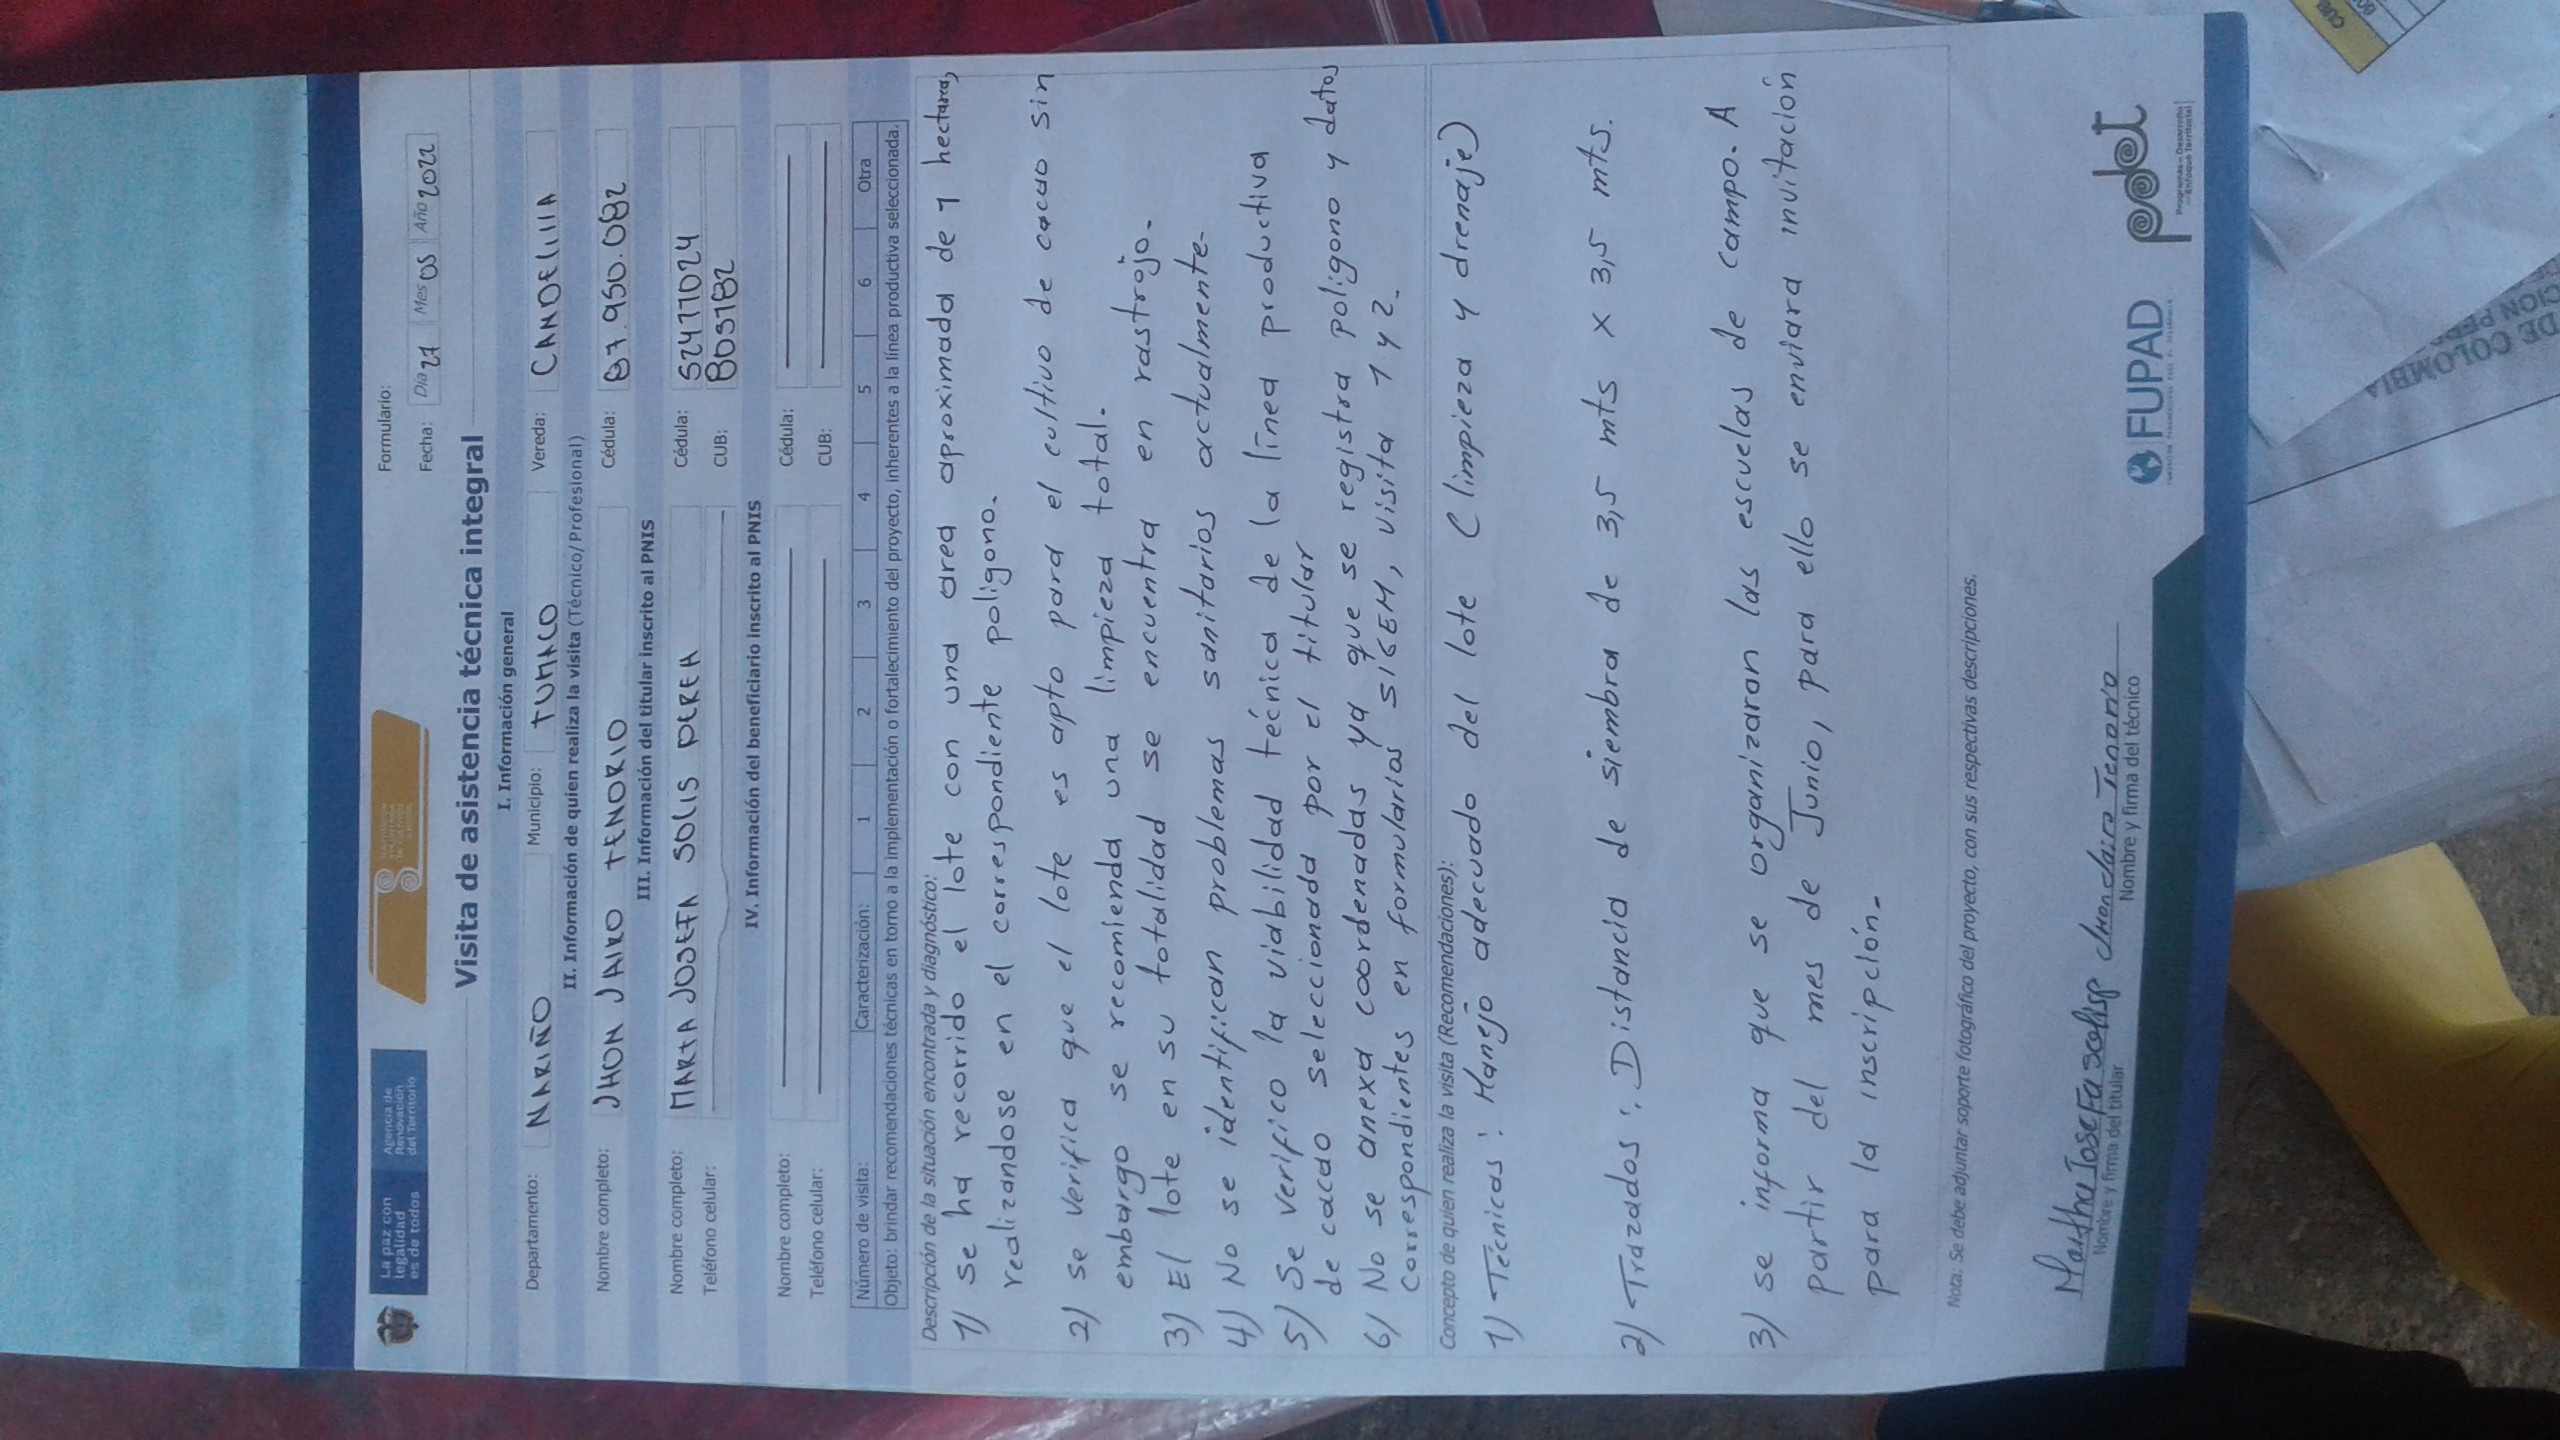 La paz con
legalidad
es de todos
Agencia de
Renovación
del Territorio
Formulario:
Fecha: Día 27 Mes 05 Año 2022
Visita de asistencia técnica integral
I. Información general
Departamento: NARIÑO Municipio: TUMACO Vereda: CANDELILLA
II. Información de quien realiza la visita (Técnico/Profesional)
Nombre completo: JHON JAIRO TENORIO Cédula: 87.950.082
III. Información del titular inscrito al PNIS
Nombre completo: MARTA JOSEFA SOLIS PEREA Cédula: 52477024
Teléfono celular: CUB: 8031B2
IV. Información del beneficiario inscrito al PNIS
Nombre completo: Cédula:
Teléfono celular: CUB:
Número de visita: Caracterización: 1 2 3 4 5 6 Otra
Objeto: brindar recomendaciones técnicas en torno a la implementación o fortalecimiento del proyecto, inherentes a la línea productiva seleccionada.
Descripción de la situación encontrada y diagnóstico:
1) se ha recorrido el lote con una area aproximada de 1 hectarea,
realizandose en el correspondiente poligono.
2) se verifica que el lote es apto para el cultivo de cacao sin
embargo se recomienda una limpieza total.
3) El lote en su totalidad se encuentra en rastrojo.
4) No se identifican problemas sanitarios actualmente-
5) Se verifico la viabilidad técnica de la línea productiva
de cacao seleccionada por el titular
6) No se anexa coordenadas ya que se registra poligono y datos
correspondientes en formularios SIGEM, visita 1 y 2.
Concepto de quien realiza la visita (Recomendaciones):
1) Técnicas: Manejo adecuado del lote (limpieza y drenaje)
2) Trazados: Distancia de siembra de 3,5 mts x 3,5 mts.
3) se informa que se organizaran las escuelas de campo. A
partir del mes de Junio, para ello se enviara invitación
para la inscripción.
Nota: Se debe adjuntar soporte fotográfico del proyecto, con sus respectivas descripciones.
Martha Josefa solisp Jhon Jairo Tenorio
Nombre y firma del titular Nombre y firma del técnico
FUPAD
pdet
Programas de Desarrollo
con Enfoque Territorial
DE COLOMBIA